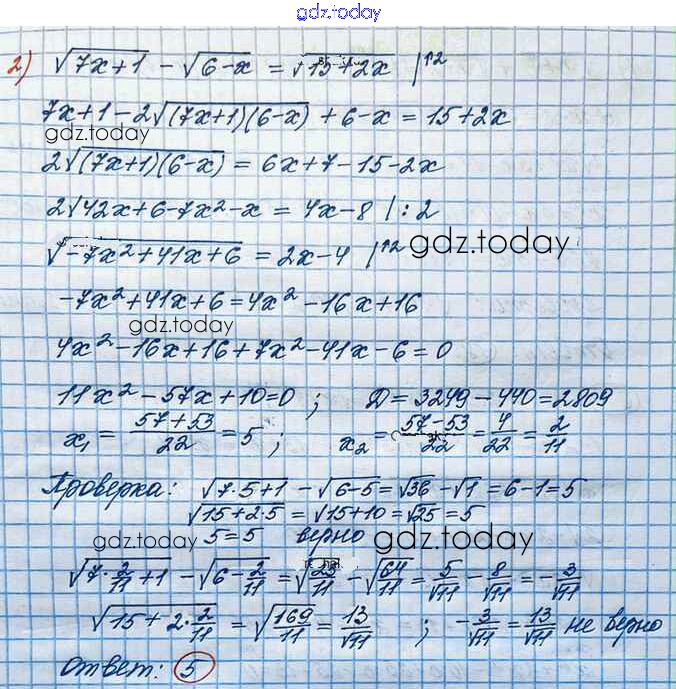 gdz.today
2) √(7x+1) − √(6−x) = √(15+2x) |↑2
7x+1−2√((7x+1)(6−x)) + 6−x = 15+2x
gdz.today
2√((7x+1)(6−x)) = 6x+7−15−2x
2√42x+6−7x²−x = 4x−8 |:2
√(−7x²+41x+6) = 2x−4 |↑2 gdz.today
−7x²+41x+6=4x²−16x+16
gdz.today
4x²−16x+16+7x²−41x−6=0
11x²−57x+10=0 ; D=3249−440=2809
x₁ = (57+53)/22 = 5 ; x₂ = (57−53)/22 = 4/22 = 2/11
Проверка: √(7·5+1) − √(6−5) = √36 − √1 = 6−1=5
√(15+2·5) = √(15+10) = √25 = 5
gdz.today 5=5 верно gdz.today
√(7·2/11+1) − √(6−2/11) = √(25/11) − √(64/11) = 5/√11 − 8/√11 = −3/√11
√(15+2·2/11) = √(169/11) = 13/√11 ; −3/√11 = 13/√11 не верно
Ответ: 5